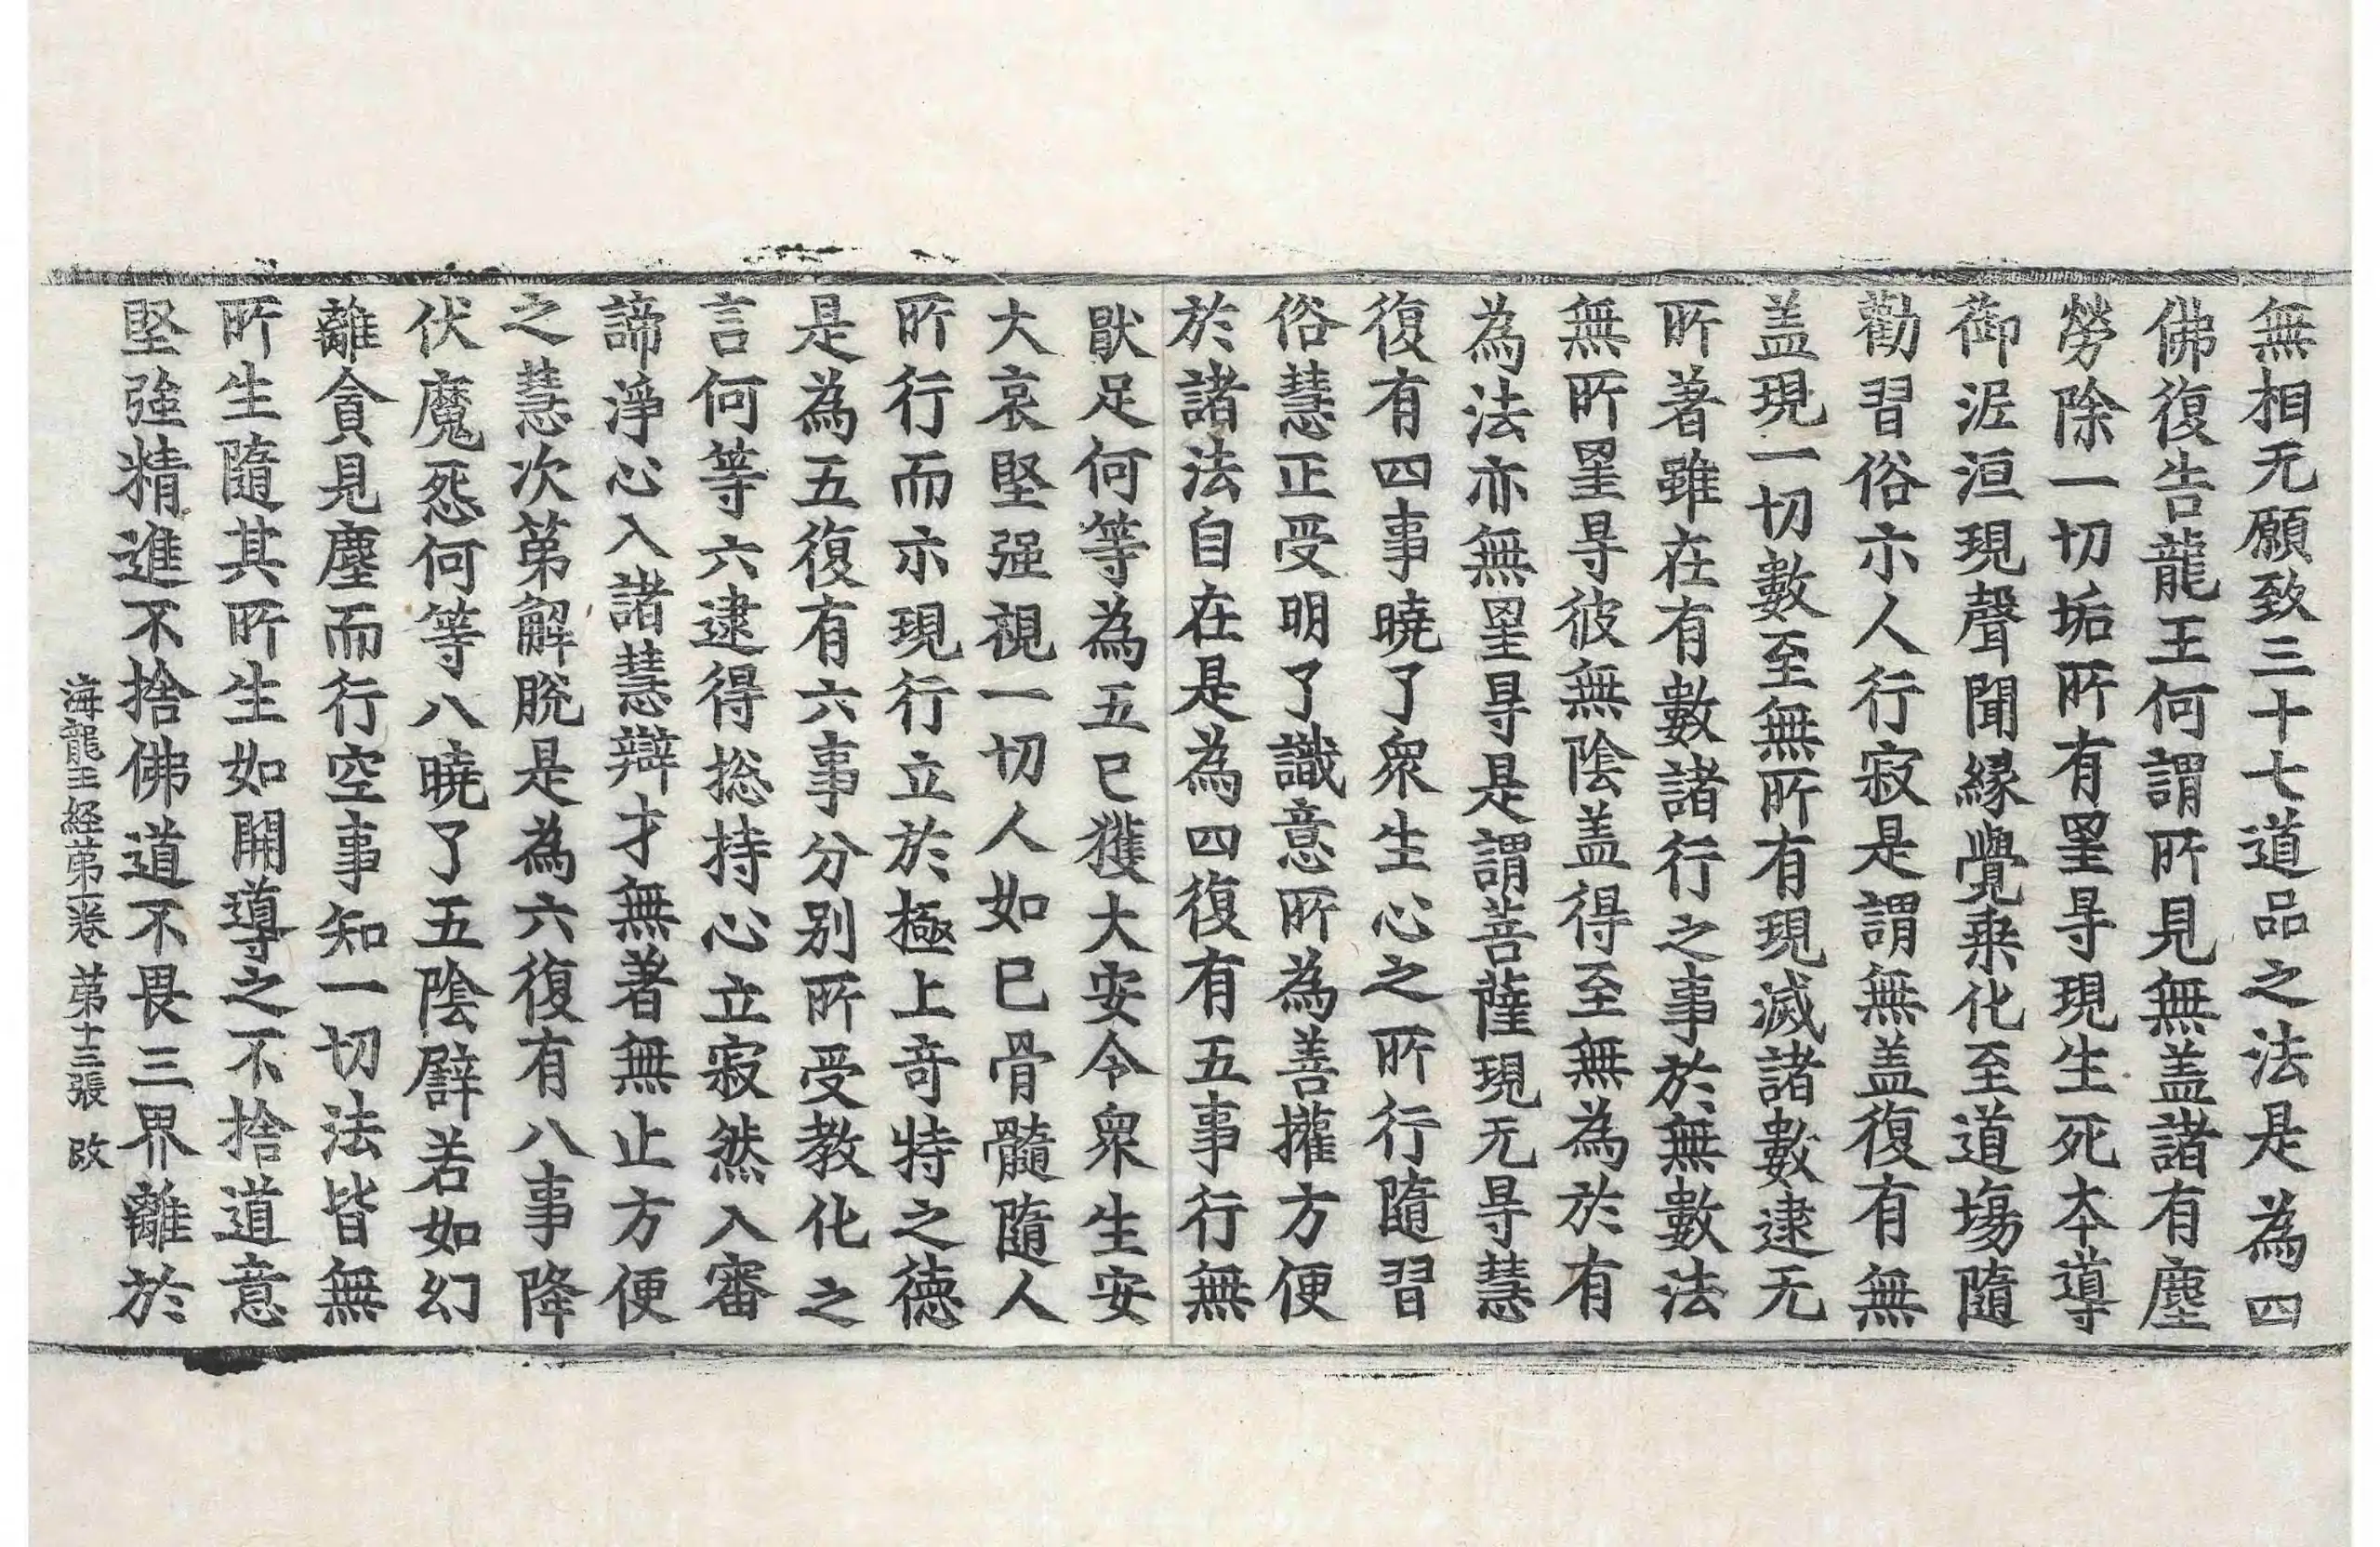 無相无願致三十七道品之法是為四
佛復告龍王何謂所見無盖諸有塵
勞除一切垢所有罣㝵現生死本導
御泥洹現聲聞緣覺乗化至道場隨
勸習俗示人行寂是謂無盖復有無
盖現一切數至無所有現滅諸數逮无
所著雖在有數諸行之事於無數法
無所罣㝵彼無陰盖得至無為於有
為法亦無罣㝵是謂菩薩現无㝵慧
復有四事曉了衆生心之所行行隨習
俗慧正受明了識意所為善攉方便
於諸法自在是為四復有五事行無
猒足何等為五已獲大安令衆生安
大哀堅强視一切人如已骨髓隨人
所行而示現行立於極上竒特之德
是為五復有六事分别所受教化之
言何等六逮得捴持心立寂然入審
諦淨心入諸慧辯才無著無止方便
之慧次第解脫是為六復有八事降
伏魔怨何等八曉了五陰譬若如幻
離貪見塵而行空事知一切法皆無
所生隨其所生如開導之不捨道意
堅強精進不捨佛道不畏三界離於
海龍王経第一卷 第十三張 改